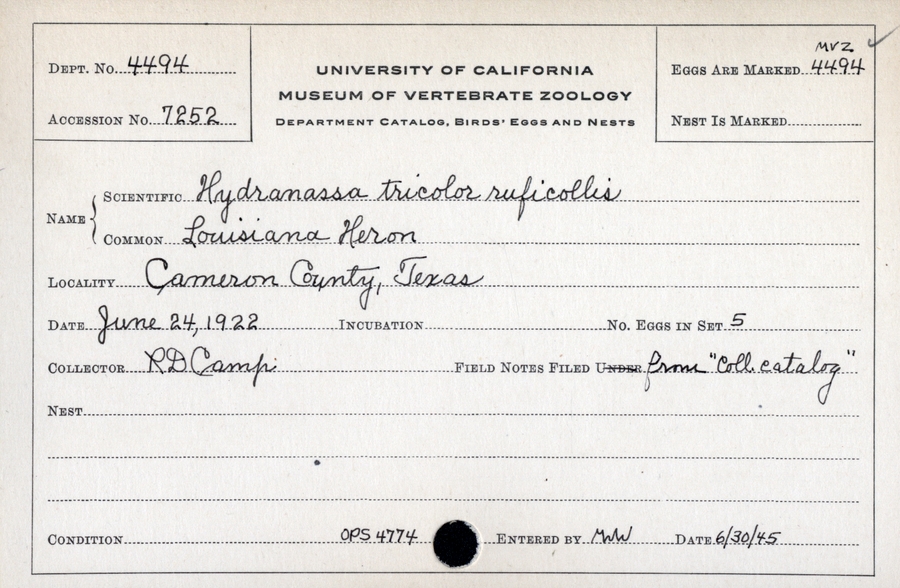 Dept. No. 4494
Accession No. 7252
UNIVERSITY OF CALIFORNIA
MUSEUM OF VERTEBRATE ZOOLOGY
Department Catalog, Birds' Eggs and Nests
MVZ ✓
Eggs Are Marked 4494
Nest Is Marked
Name
Scientific Hydranassa tricolor ruficollis
Common Louisiana Heron
Locality Cameron County, Texas
Date June 24, 1922 Incubation No. Eggs in Set 5
Collector RD Camp Field Notes Filed Under from "Coll. catalog"
Nest
Condition OPS 4774 Entered by MW Date 6/30/45